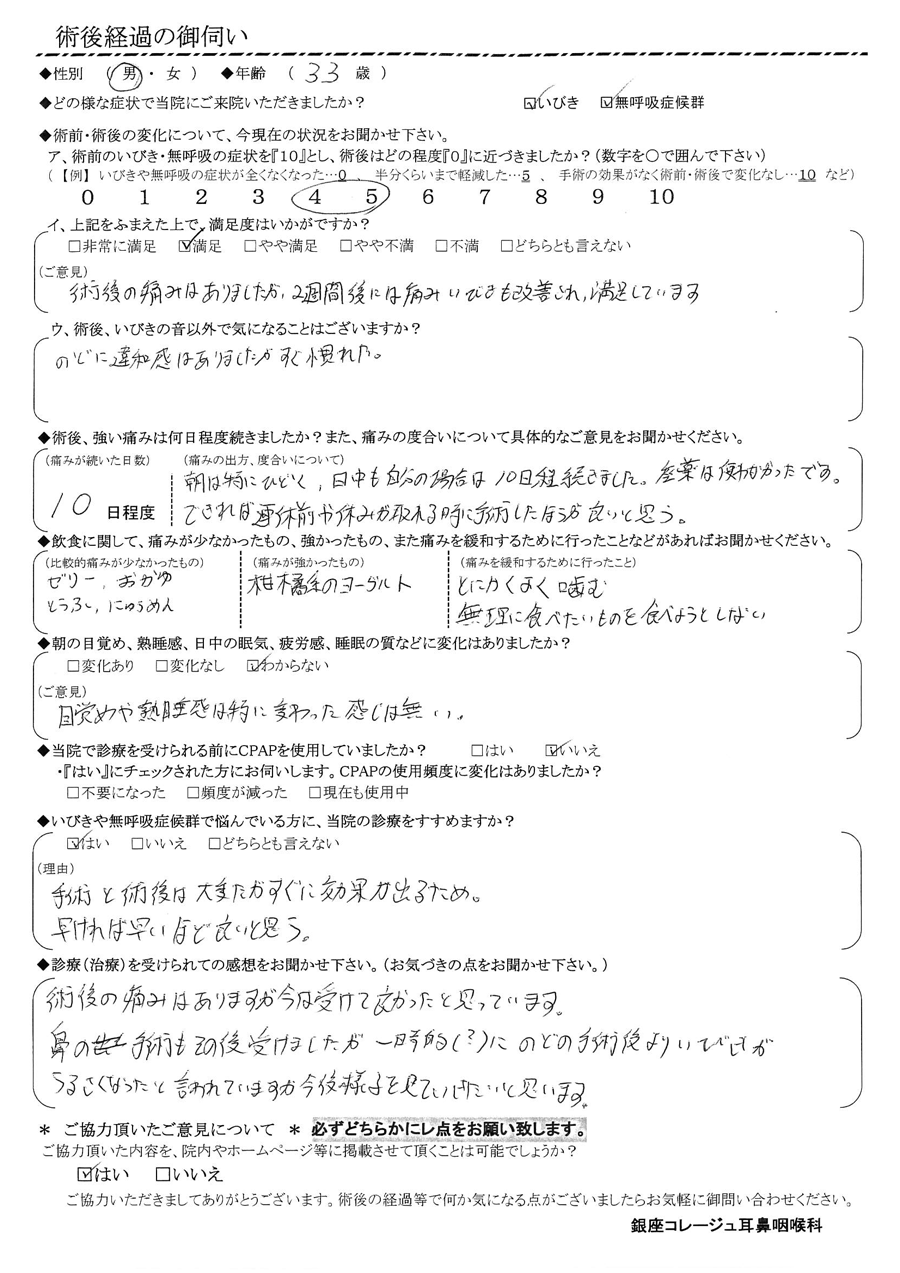 術後経過の御伺い
◆性別 （ 男 ・ 女 ） ◆年齢 （ 33 歳 ）
◆どの様な症状で当院にご来院いただきましたか？ ☑いびき ☑無呼吸症候群
◆術前・術後の変化について、今現在の状況をお聞かせ下さい。
ア、術前のいびき・無呼吸の症状を『10』とし、術後はどの程度『0』に近づきましたか？（数字を〇で囲んで下さい）
（ 【例】 いびきや無呼吸の症状が全くなくなった…0 、 半分くらいまで軽減した…5 、 手術の効果がなく術前・術後で変化なし…10 など）
0 1 2 3 4 5 6 7 8 9 10
イ、上記をふまえた上で、満足度はいかがですか？
□非常に満足 ☑満足 □やや満足 □やや不満 □不満 □どちらとも言えない
（ご意見）
術後の痛みはありましたが、2週間後には痛みいびきも改善され、満足しています
ウ、術後、いびきの音以外で気になることはございますか？
のどに違和感はありましたがすぐ慣れた。
◆術後、強い痛みは何日程度続きましたか？また、痛みの度合いについて具体的なご意見をお聞かせください。
（痛みが続いた日数） （痛みの出方、度合いについて）
朝は特にひどく、日中も自分の場合は10日程続きました。座薬は使わなかったです。
10 日程度 できれば連休前や休みが取れる時に手術したほうが良いと思う。
◆飲食に関して、痛みが少なかったもの、強かったもの、また痛みを緩和するために行ったことなどがあればお聞かせください。
（比較的痛みが少なかったもの） （痛みが強かったもの） （痛みを緩和するために行ったこと）
ゼリー、おかゆ 柑橘系のヨーグルト とにかくよく噛む
とうふ、にゅうめん 無理に食べたいものを食べようとしない
◆朝の目覚め、熟睡感、日中の眠気、疲労感、睡眠の質などに変化はありましたか？
□変化あり □変化なし ☑わからない
（ご意見）
目覚めや熟睡感は特に変わった感じは無い。
◆当院で診療を受けられる前にCPAPを使用していましたか？ □はい ☑いいえ
・『はい』にチェックされた方にお伺いします。CPAPの使用頻度に変化はありましたか？
□不要になった □頻度が減った □現在も使用中
◆いびきや無呼吸症候群で悩んでいる方に、当院の診療をすすめますか？
☑はい □いいえ □どちらとも言えない
（理由）
手術と術後は大変だがすぐに効果が出るため。
早ければ早いほど良いと思う。
◆診療（治療）を受けられての感想をお聞かせ下さい。（お気づきの点をお聞かせ下さい。）
術後の痛みはありますが今は受けて良かったと思っています。
鼻の手術もその後受けましたが一時的（？）にのどの手術後よりいびきが
うるさくなったと言われていますが今後様子を見ていきたいと思います。
＊ ご協力頂いたご意見について ＊ 必ずどちらかにレ点をお願い致します。
ご協力頂いた内容を、院内やホームページ等に掲載させて頂くことは可能でしょうか？
☑はい □いいえ
ご協力いただきましてありがとうございます。術後の経過等で何か気になる点がございましたらお気軽に御問い合わせください。
銀座コレージュ耳鼻咽喉科